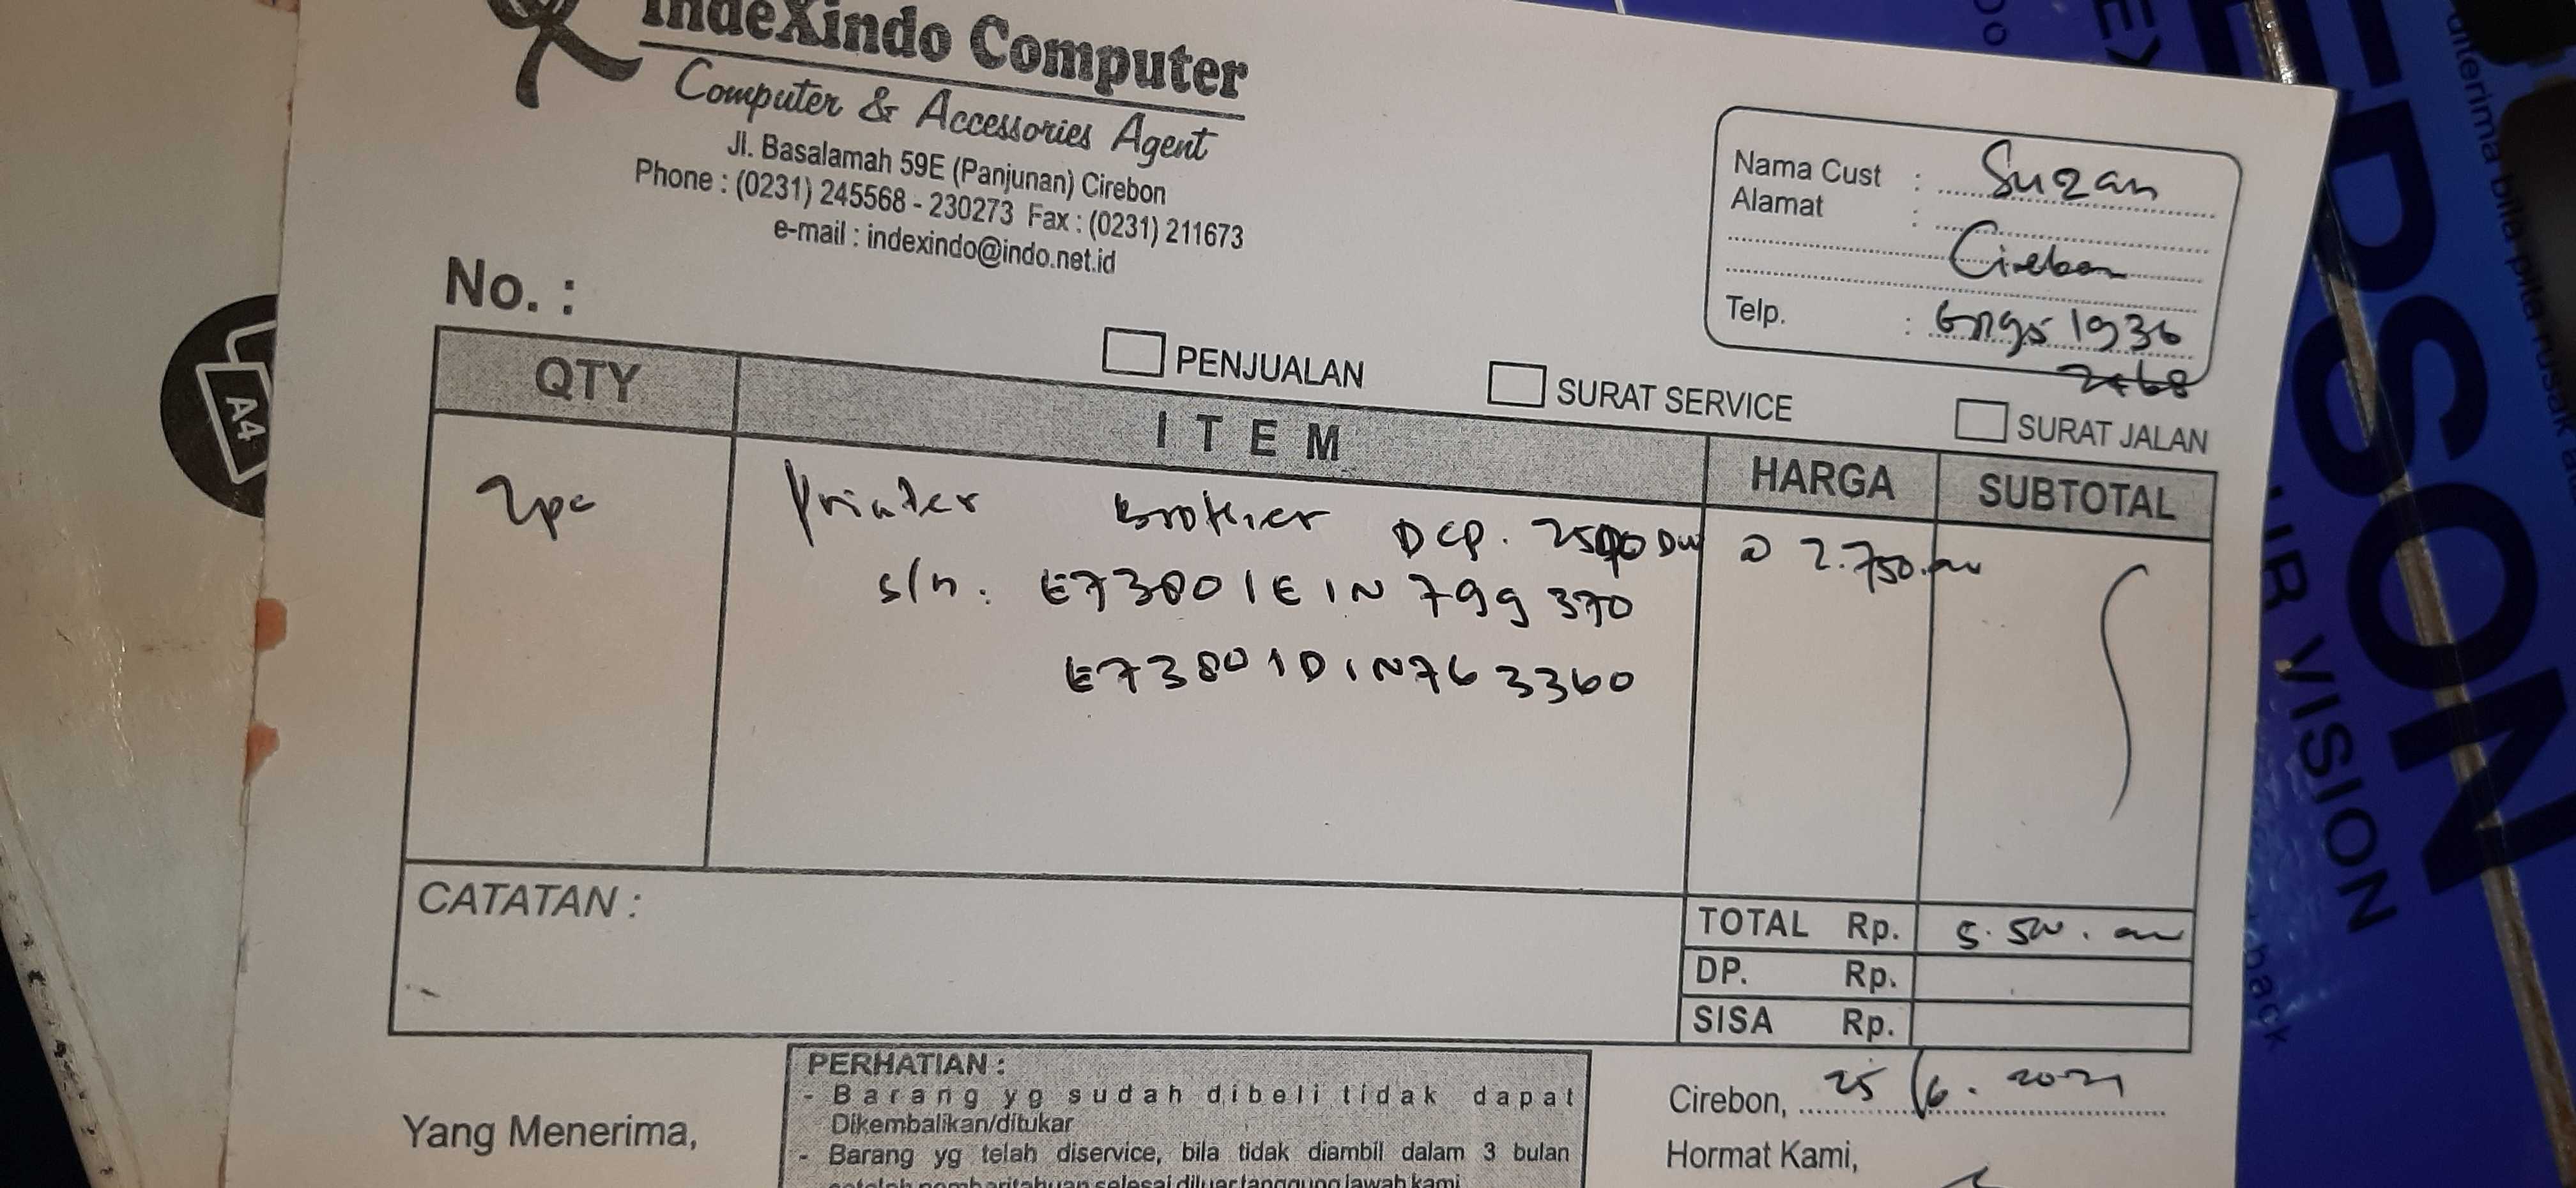 IndeXindo Computer
Computer & Accessories Agent
Jl. Basalamah 59E (Panjunan) Cirebon
Phone : (0231) 245568 - 230273 Fax : (0231) 211673
e-mail : indexindo@indo.net.id
Nama Cust : Suzan
Alamat :
Cirebon
Telp. : 1936
2468
No. :
PENJUALAN
SURAT SERVICE
SURAT JALAN
QTY ITEM HARGA SUBTOTAL
2pc Printer Brother DCP. DW @ 2.750.
s/n. E73801E1N799370
E73801D1N763360
CATATAN :
TOTAL Rp. 5.500.
DP. Rp.
SISA Rp.
PERHATIAN :
- Barang yg sudah dibeli tidak dapat
Dikembalikan/ditukar
- Barang yg telah diservice, bila tidak diambil dalam 3 bulan
setelah pemberitahuan selesai diluar tanggung jawab kami
Yang Menerima,
Cirebon, 25/6.2021
Hormat Kami,
A4
EPSON
VISION